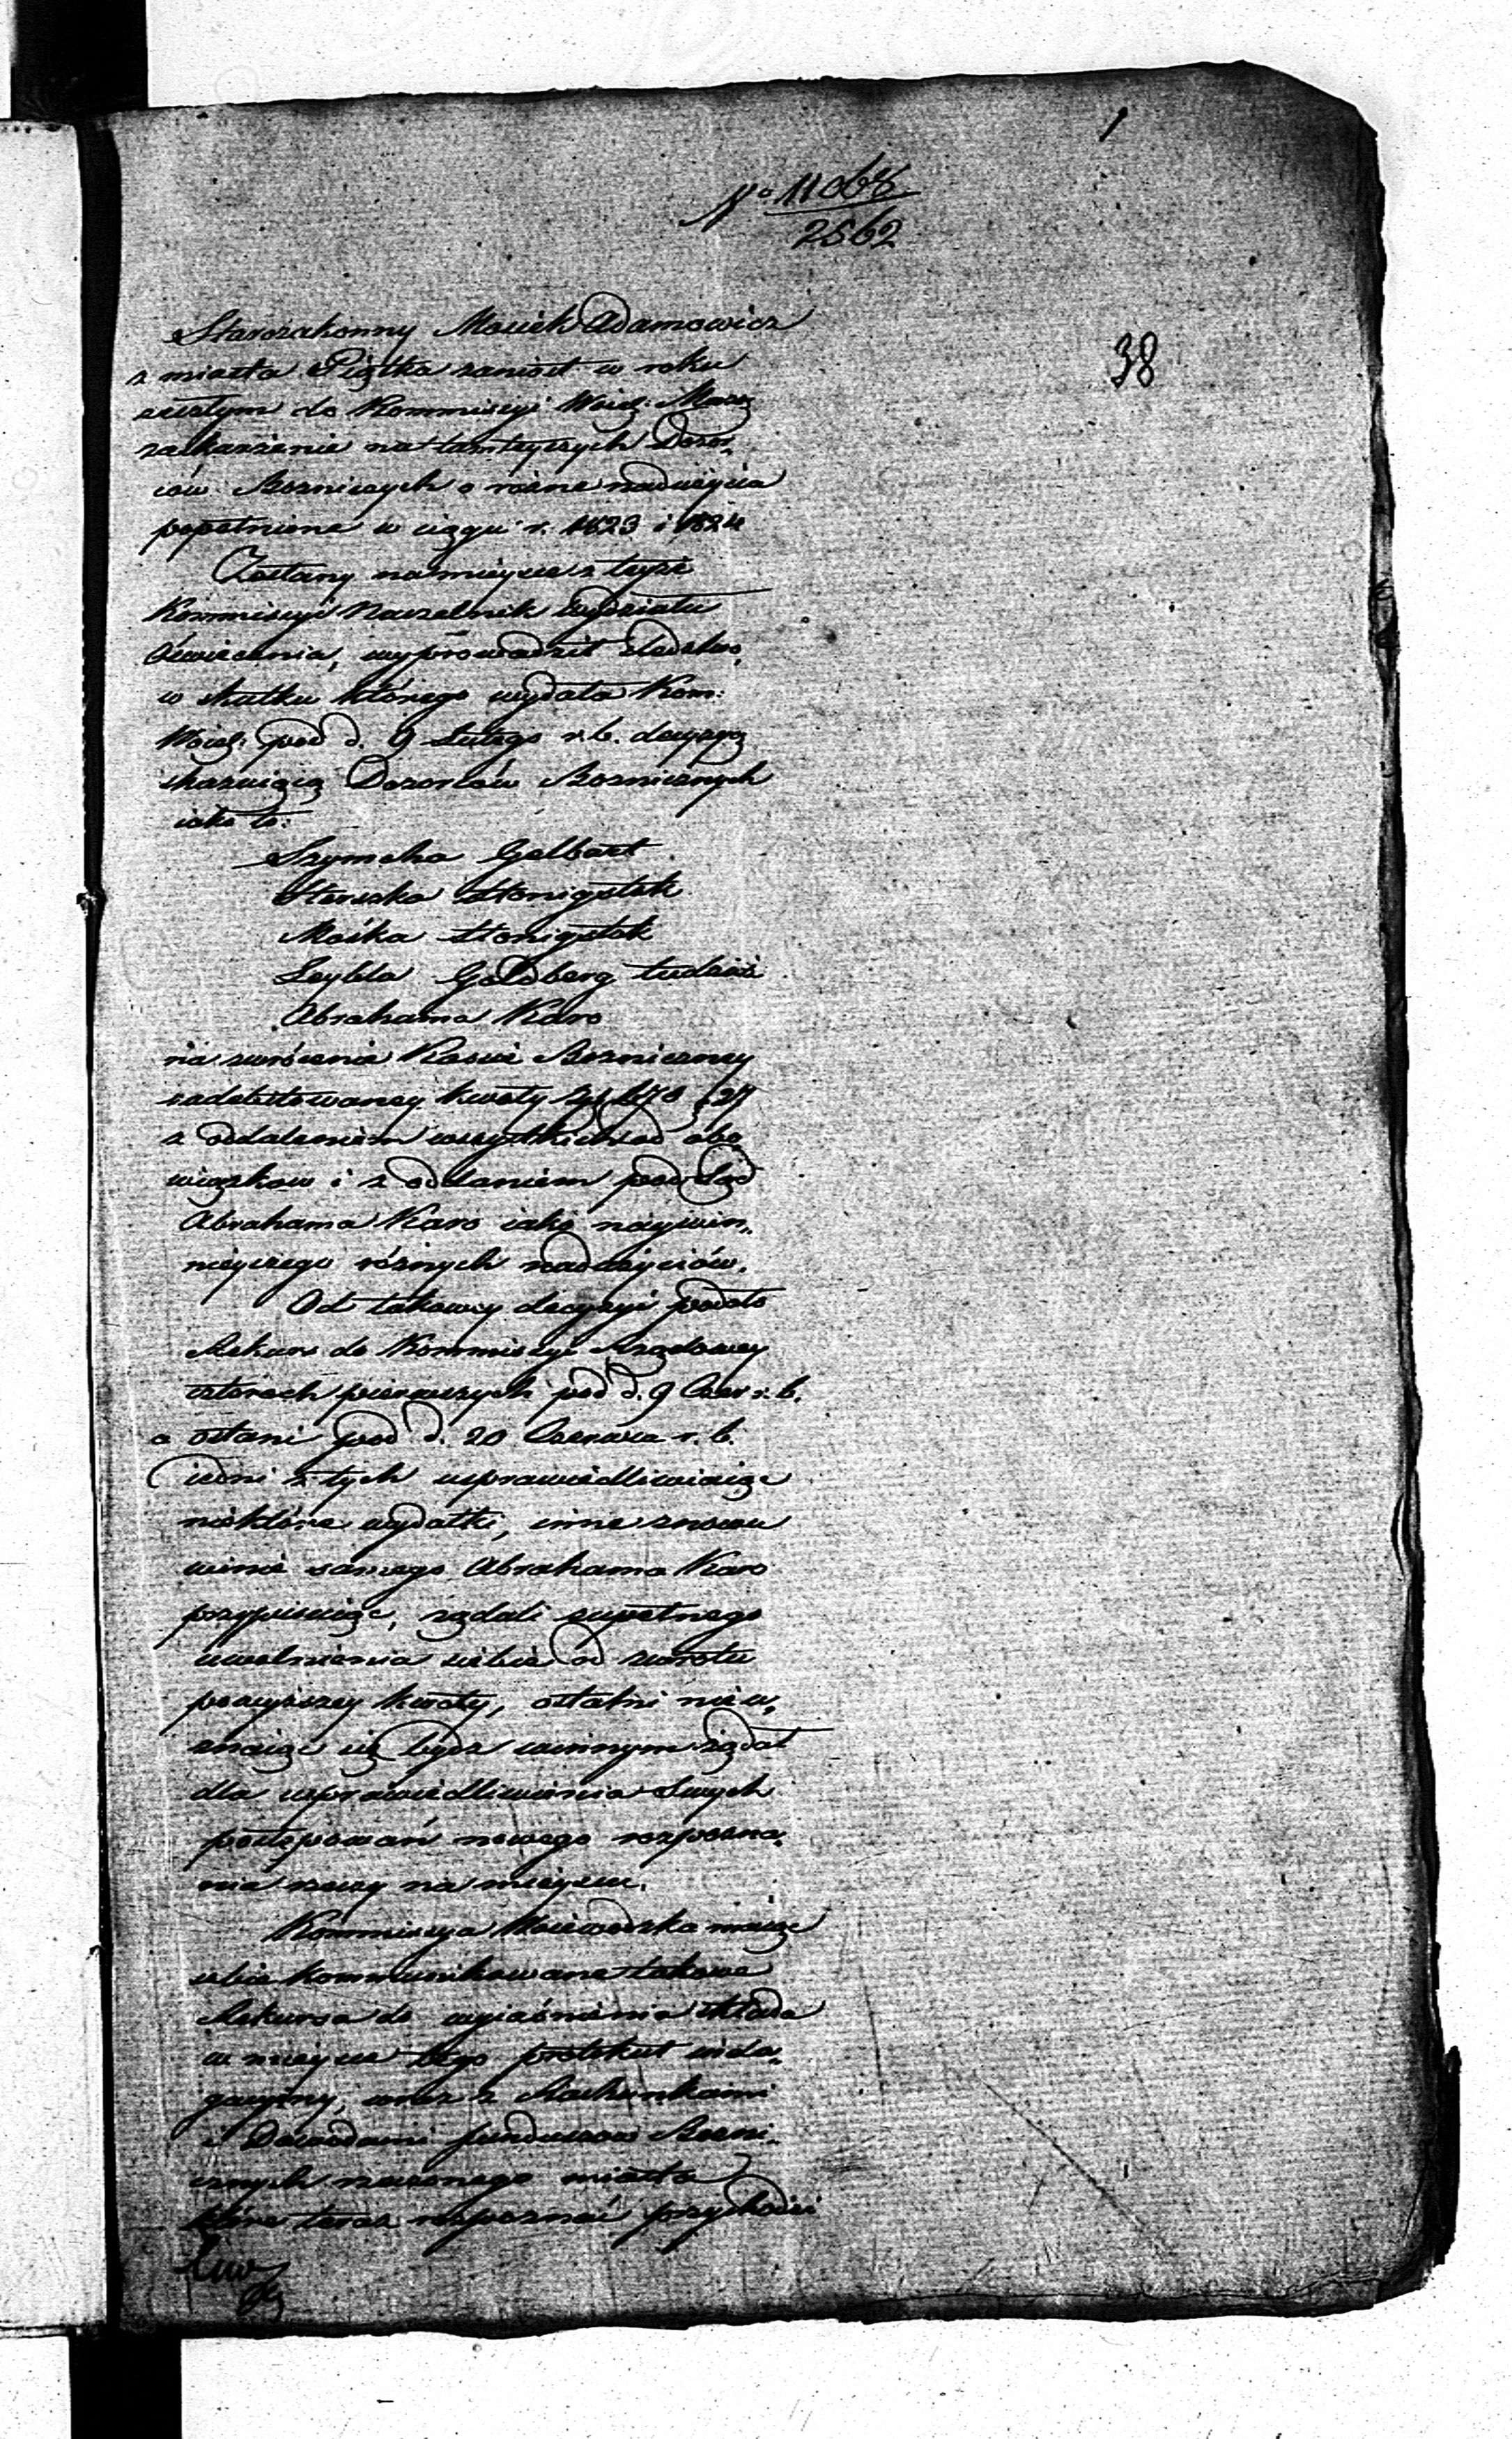 1
No 11068
2562
38
Starozakonny Mosiek Adamowicz
z miasta Piątka zaniósł w roku
zeszłym do Kommissyi Woiedz: Mazo:
zaskarżenie na tamteyszych Dozor„
ców Bożniczych o różne nadużycia
popełnione w ciągu r. 1823 i 1824
Zesłany na mieysce z teyże
Kommissyi Naczelnik Wydziału
Oświecenia, wyprowadził śledztwo,
w skutku którego wydała Kom:
Woiedz: pod d. 9 Lutego r. b. decyzyą
skazuiącą Dozorców Bożnicznych
iako to:
Szymcha Gelbart
Herszka Honigstok
Mośka Honigstok
Leybla Goldberg tudzież
Abrahama Karo
na zwrócenie Kassie Bożniczney
zadefektowaney kwoty Zł 27
z oddaleniem wszystkich od obo„
wiązków i z oddaniem pod Sąd
Abrahama Karo iako naywin„
nieyszego różnych nadużyciów.
Od takowey decyzyi podało
Rekurs do Kommissyi Rządowey
czterech pierwszych pod d. 9 Czer. r. b.
a ostani pod d. 20 Czerwca r. b.
iedni z tych usprawiedliwiaiąc
niektóre wydatki, inne znowu
winie samego Abrahama Karo
przypisuiąc, żądali zupełnego
uwolnienia siebie od zwrotu
powyższey kwoty, ostatni nieu„
znaiąc się bydz winnym żądał
dla usprawiedliwienia swych
postępowań nowego rozpozna„
nia rzeczy na mieyscu.
Kommissya Woiewodzka maiąc
sobie kommunikowane takowe
Rekursa do wyiaśnienia składa
w mieysce tego protokuł inda„
gacyiny, wraz z Rachunkami
i Dowodami funduszów Bożni„
cznych rzeczonego miasta
które teraz rozpoznać przychodzi